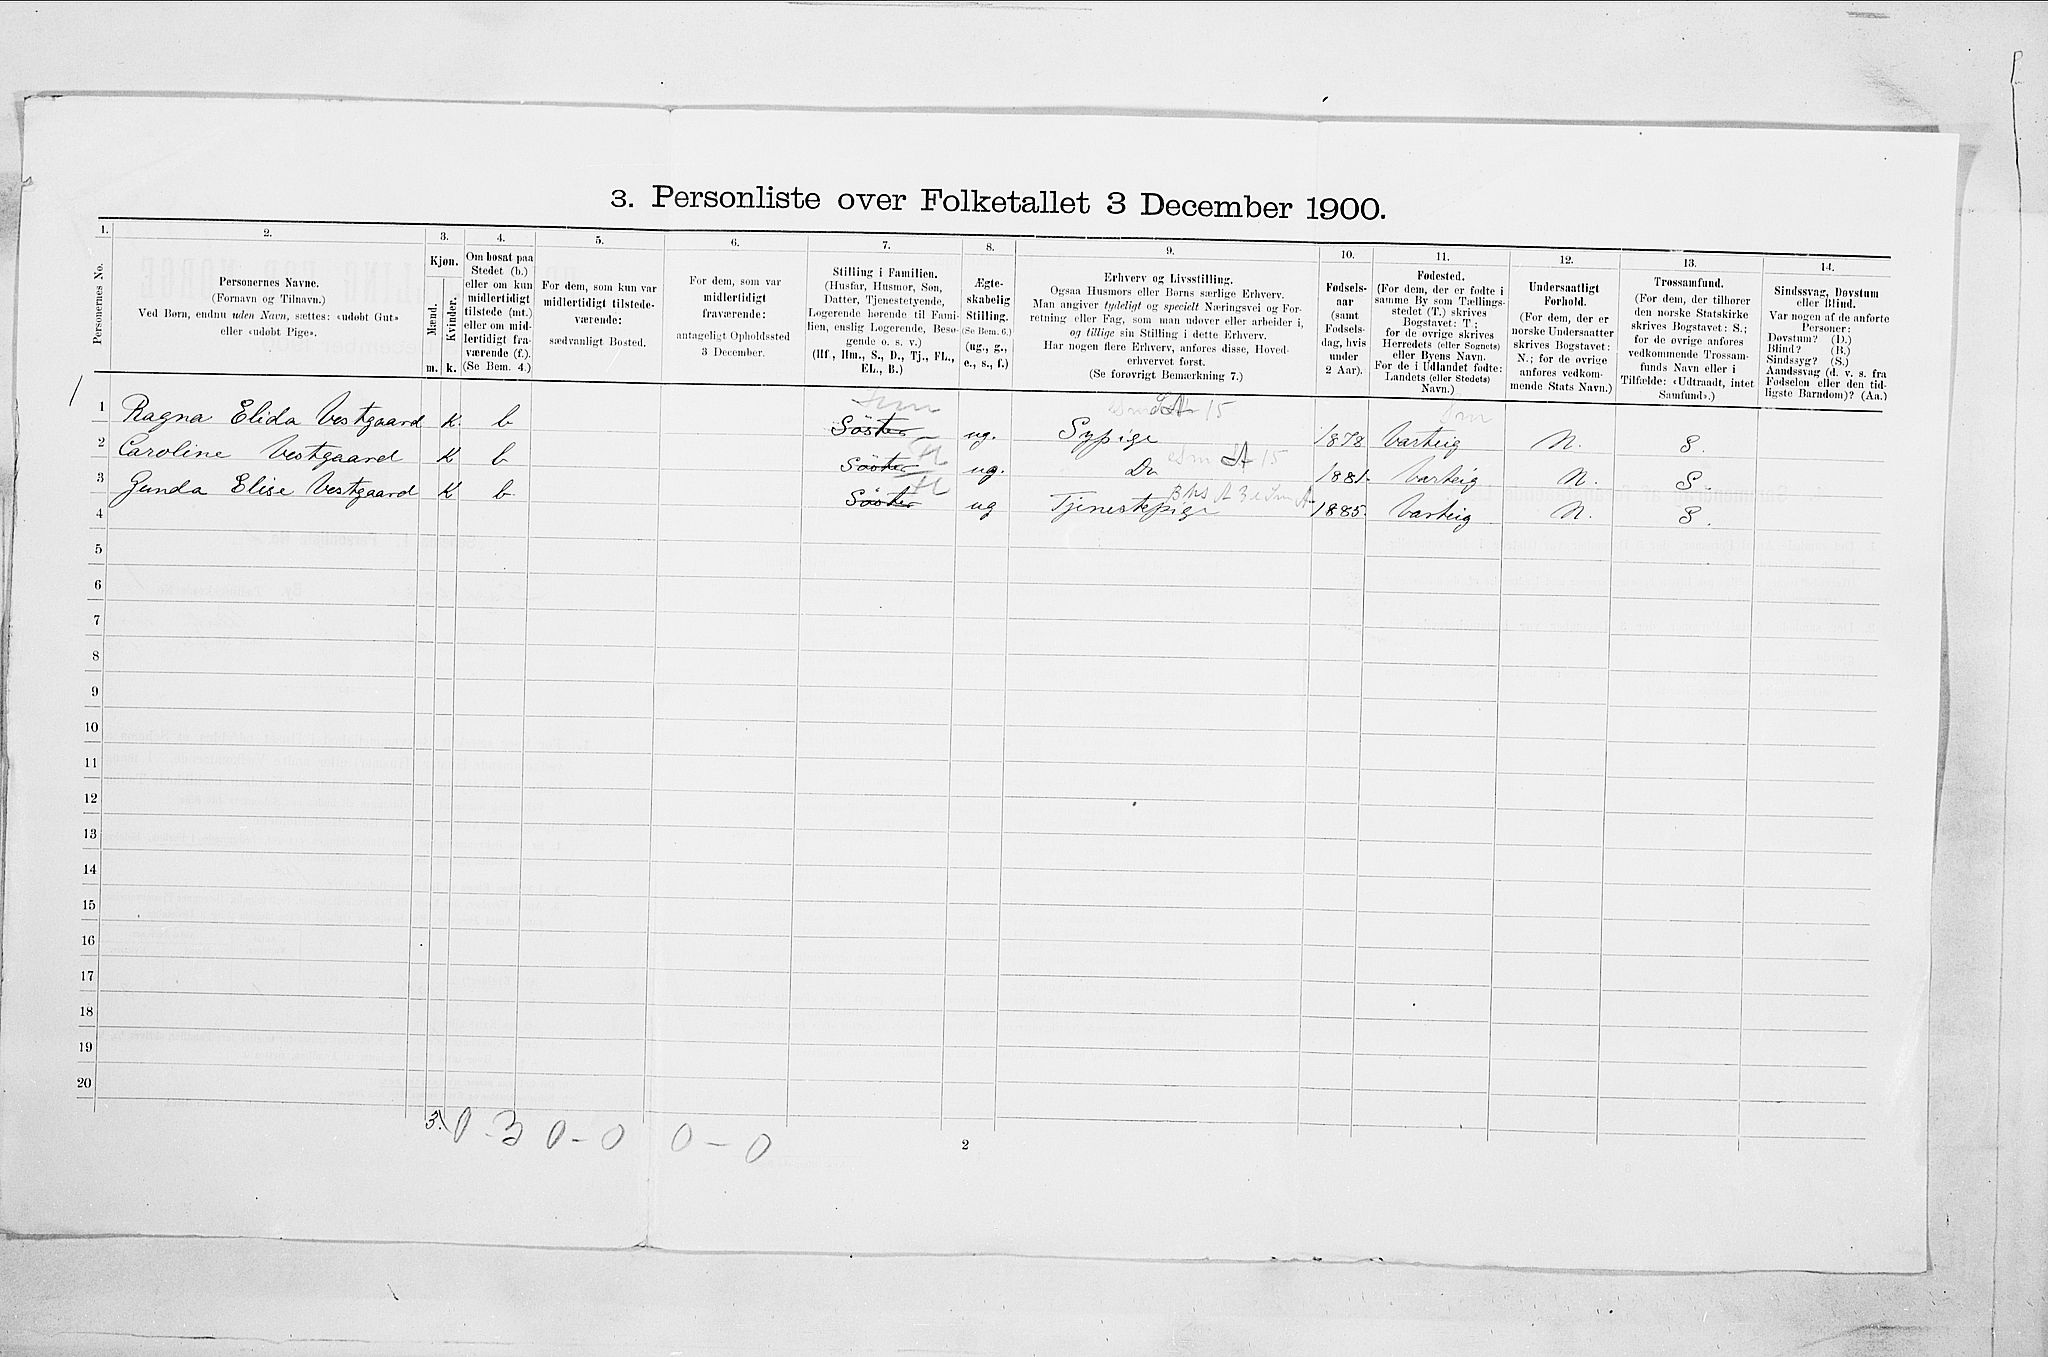 3. Personliste over Folketallet 3 December 1900.
1. 2. 3. 4. 5. 6. 7. 8. 9. 10. 11. 12. 13. 14.
Personernes No.
Personernes Navne.
(Fornavn og Tilnavn.)
Ved Børn, endnu uden Navn, sættes: «udøbt Gut»
eller «udøbt Pige».
Kjøn.
Mænd.
Kvinder.
m. k.
Om bosat paa
Stedet (b.)
eller om kun
midlertidigt
tilstede (mt.)
eller om mid-
lertidigt fra-
værende (f.).
(Se Bem. 4.)
For dem, som kun var
midlertidigt tilstede-
værende:
sædvanligt Bosted.
For dem, som var
midlertidigt
fraværende:
antageligt Opholdssted
3 December.
Stilling i Familien.
(Husfar, Husmor, Søn,
Datter, Tjenestetyende,
Logerende hørende til Fami-
lien, enslig Logerende, Besø-
gende o. s. v.)
(Hf., Hm., S., D., Tj., FL.,
EL., B.)
Ægte-
skabelig
Stilling.
(Se Bem. 6.)
(ug., g.,
e., s., f.)
Erhverv og Livsstilling.
Ogsaa Husmors eller Børns særlige Erhverv.
Man angiver tydeligt og specielt Næringsvei og For-
retning eller Fag, som man udøver eller arbeider i,
og tillige sin Stilling i dette Erhverv.
Har nogen flere Erhverv, anføres disse, Hoved-
erhvervet først.
(Se forøvrigt Bemærkning 7.)
Fødsels-
aar
(samt
Fødsels-
dag, hvis
under
2 Aar).
Fødested.
(For dem, der er fødte i
samme By som Tællings-
stedet (T.) skrives
Bogstavet: T;
for de øvrige skrives
Herredets (eller Sognets)
eller Byens Navn.
For de i Udlandet fødte:
Landets (eller Stedets)
Navn.)
Undersaatligt
Forhold.
(For dem, der er
norske Undersaatter
skrives Bogstavet:
N.; for de øvrige
anføres vedkom-
mende Stats Navn.)
Trossamfund.
(For dem, der tilhører
den norske Statskirke
skrives Bogstavet: S.;
for de øvrige anføres
vedkommende Trossam-
funds Navn eller i
Tilfælde: «Udtraadt, intet
Samfund».)
Sindssvag, Døvstum
eller Blind.
Var nogen af de anførte
Personer:
Døvstum? (D.)
Blind? (B.)
Sindssyg? (S.)
Aandssvag (d. v. s. fra
Fødselen eller den tid-
ligste Barndom)? (Aa.)
1 Ragna Elida Vestgaard K. b Söster ug. Sypige 15 1878 Varteig N. S.
2 Caroline Vestgaard K b Söster ug. Do 15 1881. Varteig N. S.
3 Gunda Elise Vestgaard K b Söster ug Tjenestepige 1885. Varteig N. S.
4
5
6
7
8
9
10
11
12
13
14
15
16
17
18
19
20
3. 0-3 0-0 0-0
2